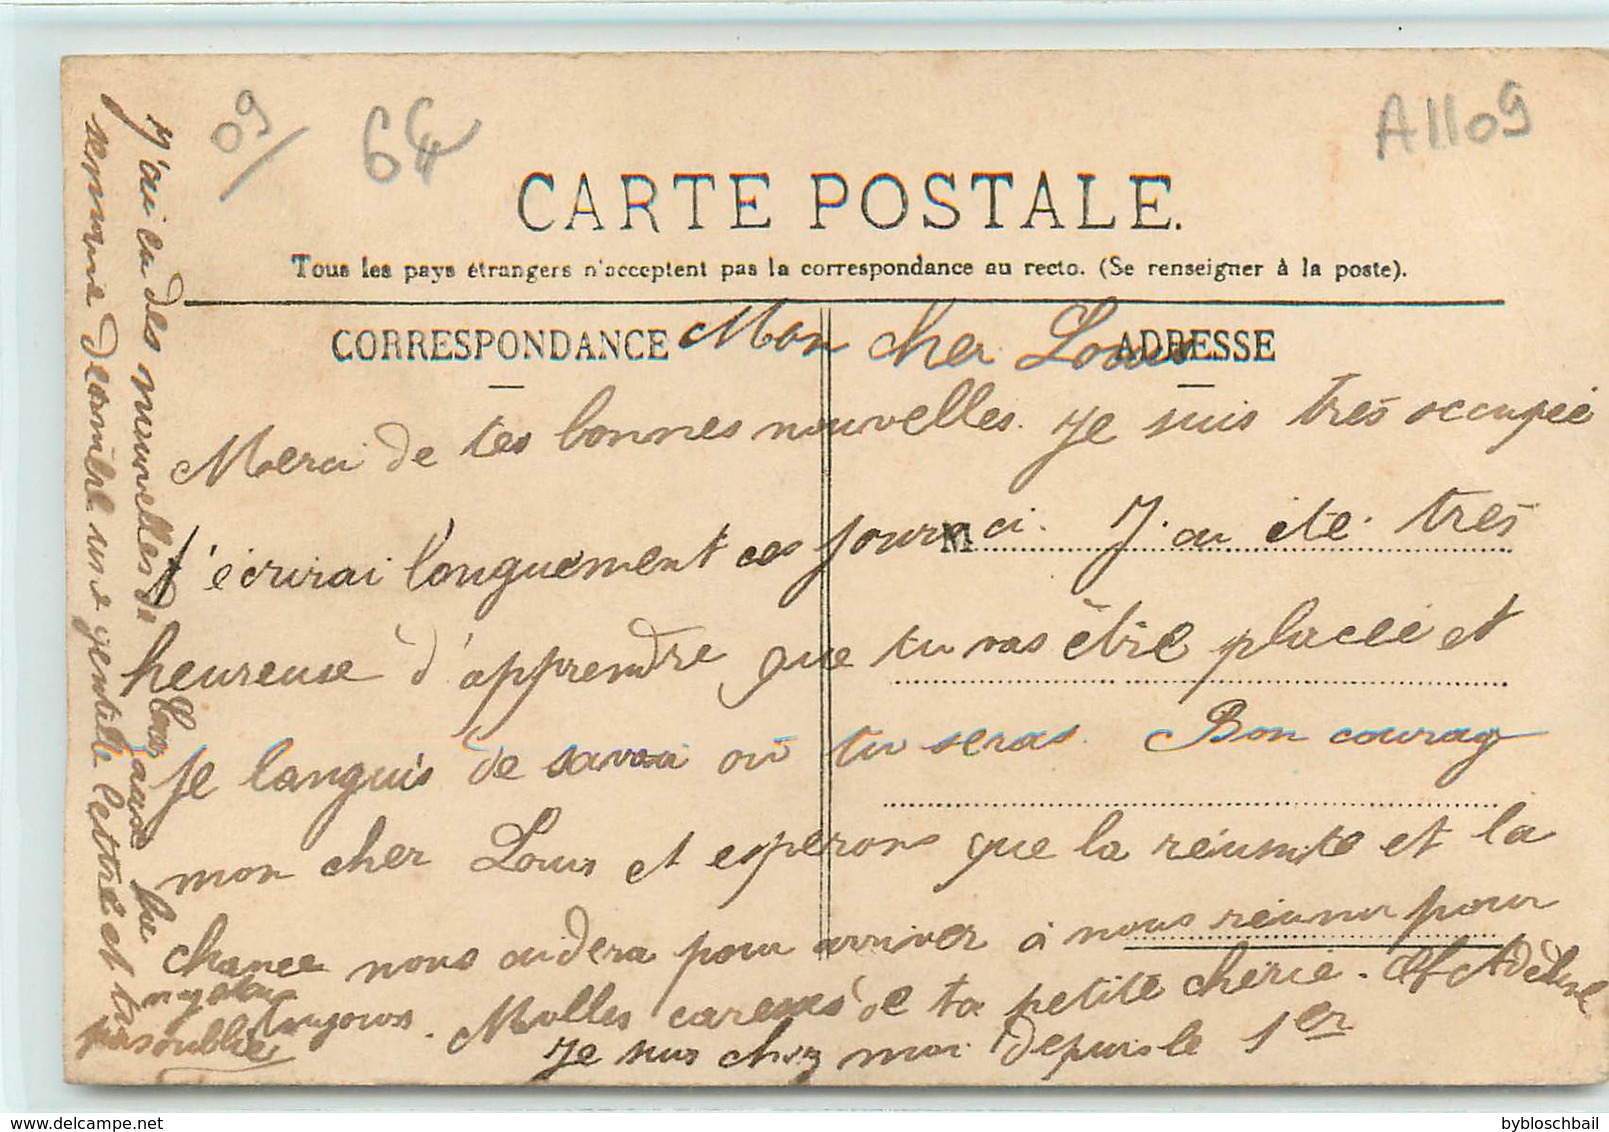 09/
6€
A1109
CARTE POSTALE.
Tous les pays étrangers n'acceptent pas la correspondance au recto. (Se renseigner à la poste).
CORRESPONDANCE
ADRESSE
Mon cher Louis
Merci de tes bonnes nouvelles. Je suis très occupée
t'écrirai longuement ces jours ci. J'ai été très
M
heureuse d'apprendre que tu vas être placée et
je languis de savoir où tu seras. Bon courag
mon cher Louis et esperons que la réussite et la
chance nous aidera pour arriver à nous réunir pour
toujours. Milles caresses de ta petite chérie. Adeline
Je suis chez moi depuis le 1er
J'ai eu des nouvelles de
semaine dernière une gentille lettre et
pas oublié
www.delcampe.net
bybloschbail